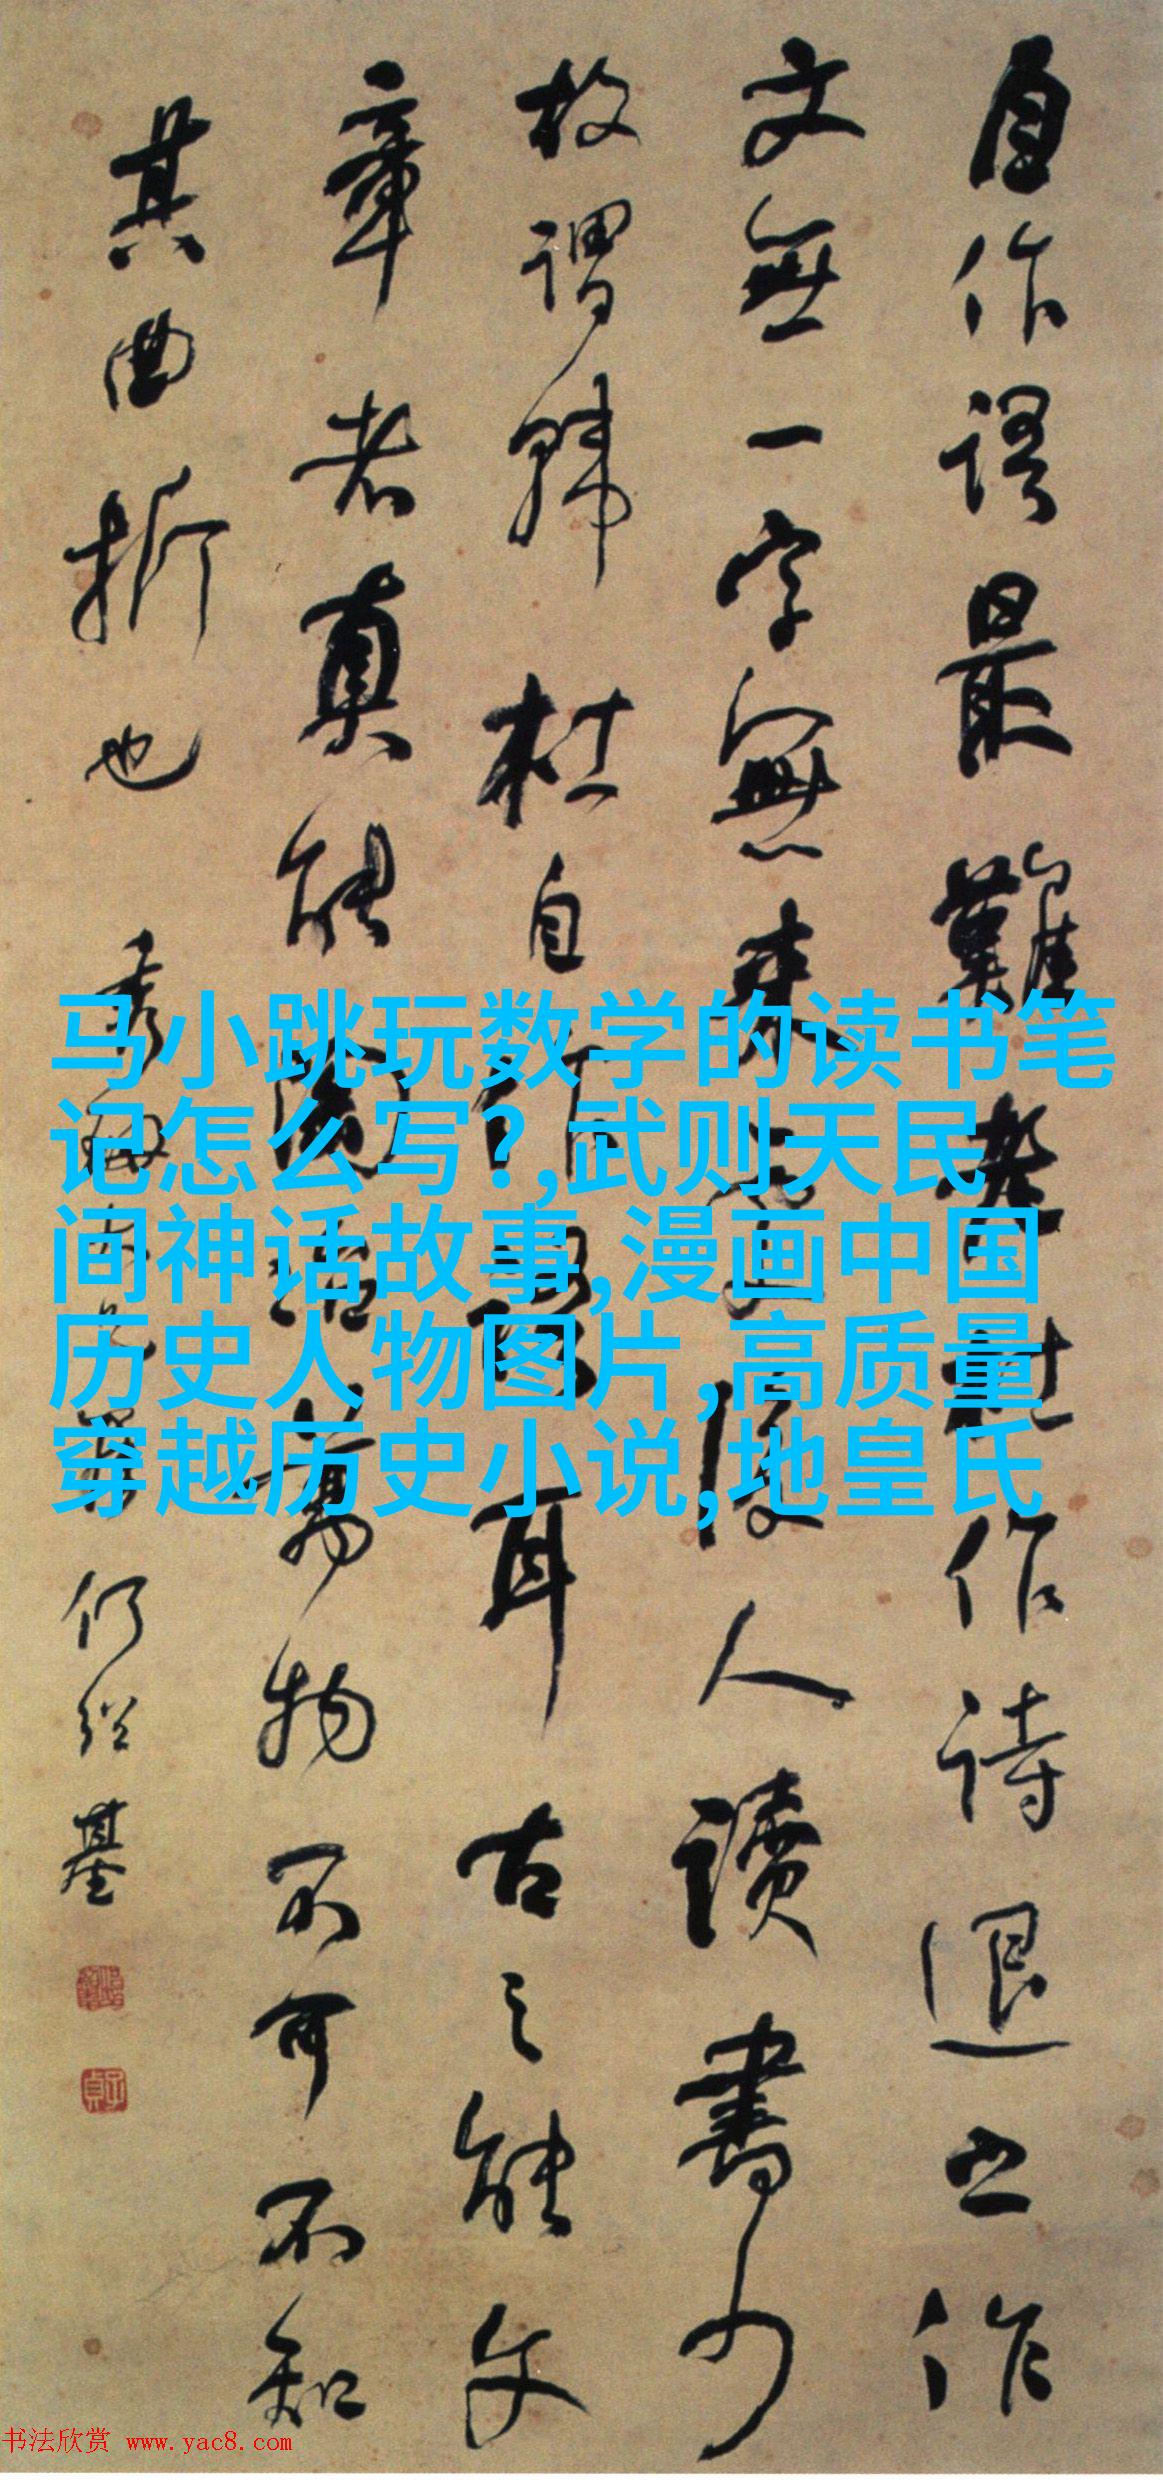 自作語最難老杜作詩退之作
文無一字無來處後人讀書少
故謂韓杜自作語耳古之能文
章者真能陶冶萬物不可不知
其曲折也
何紹基
马小跳玩数学的读书笔
记怎么写?,武则天民
间神话故事,漫画中国
历史人物图片,高质量
穿越历史小说,地皇氏
书法欣赏 www.yac8.com